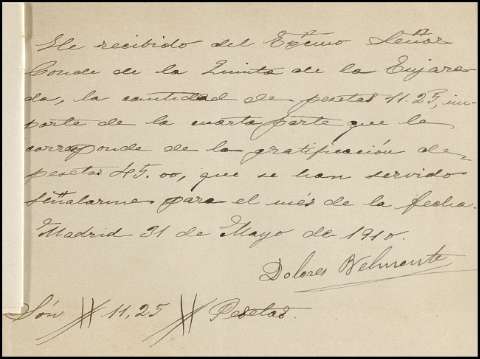 He recibido del Excmo Señor
Conde de la Quinta de la Enjara-
da, la cantidad de pesetas 11.25, im-
porte de la cuarta parte que le
corresponde de la gratificación de
pesetas 45.00, que se han servido
señalarme para el més de la fecha.
Madrid 31 de Mayo de 1910.
Dolores Belmonte
Són # 11,25 # Pesetas.